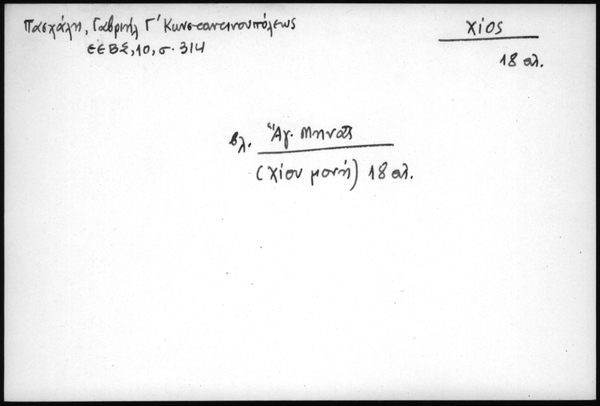 Πασχάλη, Γαβριήλ Γ' Κωνσταντινουπόλεως
ΕΕΒΣ, 10, σ. 314
Χίος
18 αι.
βλ. Ἁγ. Μηνᾶς
(Χίου μονή) 18 αι.